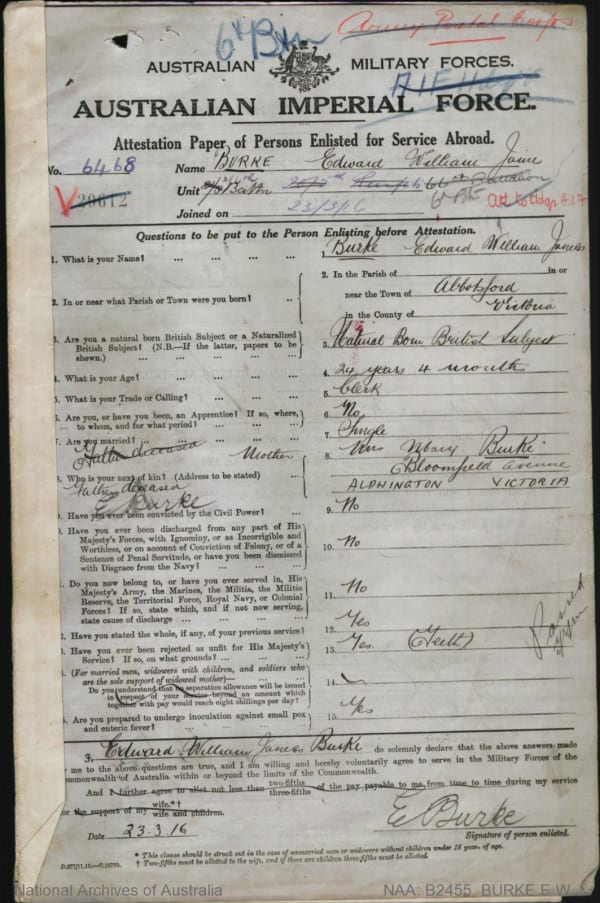 6th Btn
Army Postal Corps
AUSTRALIAN MILITARY FORCES.
AUSTRALIAN IMPERIAL FORCE.
Attestation Paper of Persons Enlisted for Service Abroad.
No. 6468
Name BURKE Edward William James
29612
Unit
6th Btn
Joined on 23/3/16
Questions to be put to the Person Enlisting before Attestation.
1. What is your Name? ... ... ...
1. Burke Edward William James
2. In or near what Parish or Town were you born? ...
2. In the Parish of in or
near the Town of Abbotsford
in the County of Victoria
3. Are you a natural born British Subject or a Naturalized
British Subject? (N.B.—If the latter, papers to be
shown.) ... ... ...
3. Natural Born British Subject
4. What is your Age? ... ... ...
4. 24 years 4 months
5. What is your Trade or Calling? ... ... ...
5. Clerk
6. Are you, or have you been, an Apprentice? If so, where,
to whom, and for what period? ... ...
6. No
7. Are you married? ... ... ...
7. Single
Father deceased Mother
8. Who is your next of kin? (Address to be stated) ...
8. Mrs Mary Burke
Bloomfield Avenue
ALPHINGTON VICTORIA
Father deceased
E Burke
9. Have you ever been convicted by the Civil Power? ...
9. No
Have you ever been discharged from any part of His
Majesty's Forces, with Ignominy, or as Incorrigible and
Worthless, or on account of Conviction of Felony, or of a
Sentence of Penal Servitude, or have you been dismissed
with Disgrace from the Navy? ... ...
10. No
Do you now belong to, or have you ever served in, His
Majesty's Army, the Marines, the Militia, the Militia
Reserve, the Territorial Force, Royal Navy, or Colonial
Forces? If so, state which, and if not now serving,
state cause of discharge ... ... ...
11. No
2. Have you stated the whole, if any, of your previous service?
12. Yes
3. Have you ever been rejected as unfit for His Majesty's
Service? If so, on what grounds? ... ...
13. Yes (Teeth)
(For married men, widowers with children, and soldiers who
are the sole support of widowed mother)—
Do you understand that no separation allowance will be issued
in respect of your service beyond an amount which
together with pay would reach eight shillings per day?
14.
Are you prepared to undergo inoculation against small pox
and enteric fever? ... ... ...
15. Yes
I, Edward William James Burke do solemnly declare that the above answers made
me to the above questions are true, and I am willing and hereby voluntarily agree to serve in the Military Forces of the
Commonwealth of Australia within or beyond the limits of the Commonwealth.
And I further agree to allot not less than two-fifths three-fifths of the pay payable to me from time to time during my service
for the support of my wife.*† wife and children.
Date 23.3.16
E Burke
Signature of person enlisted.
* This clause should be struck out in the case of unmarried men or widowers without children under 18 year of age.
† Two-fifths must be allotted to the wife, and if there are children three-fifths must be allotted.
National Archives of Australia
NAA: B2455, BURKE E W J